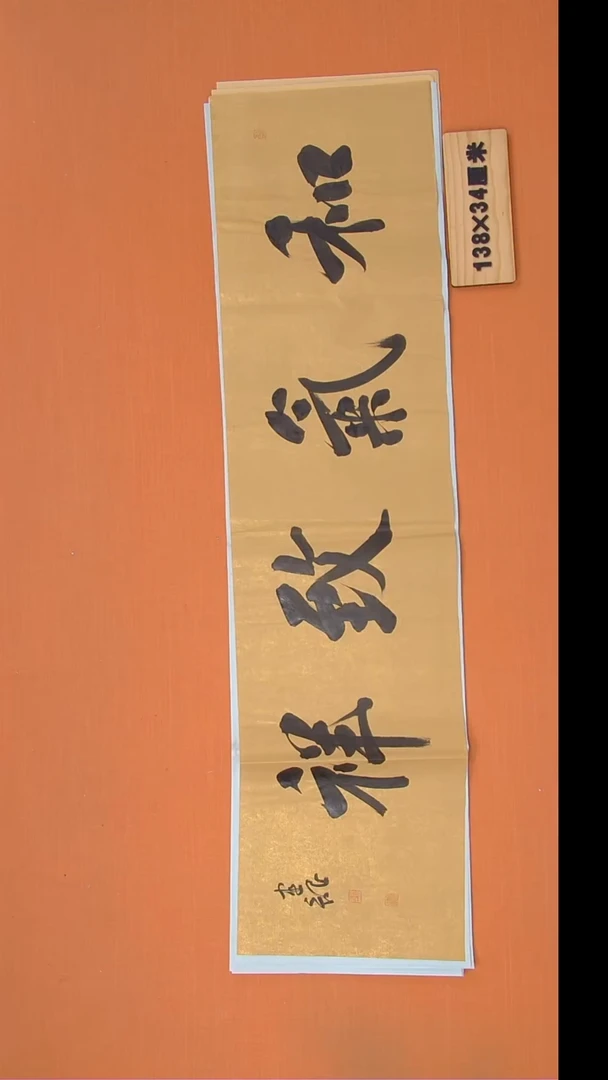 和氣致祥
138×34厘米